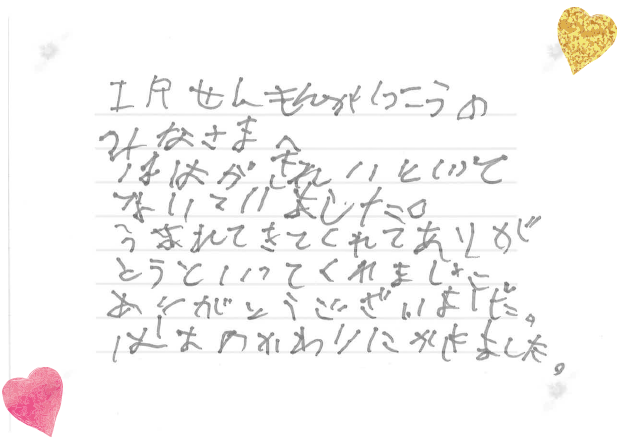 工尺せんもんがっこうの
みなさまへ
ははがきれいといって
ないていました。
うまれてきてくれてありが
とうといってくれました
ありがとうございました。
ははのかわりにかきました。